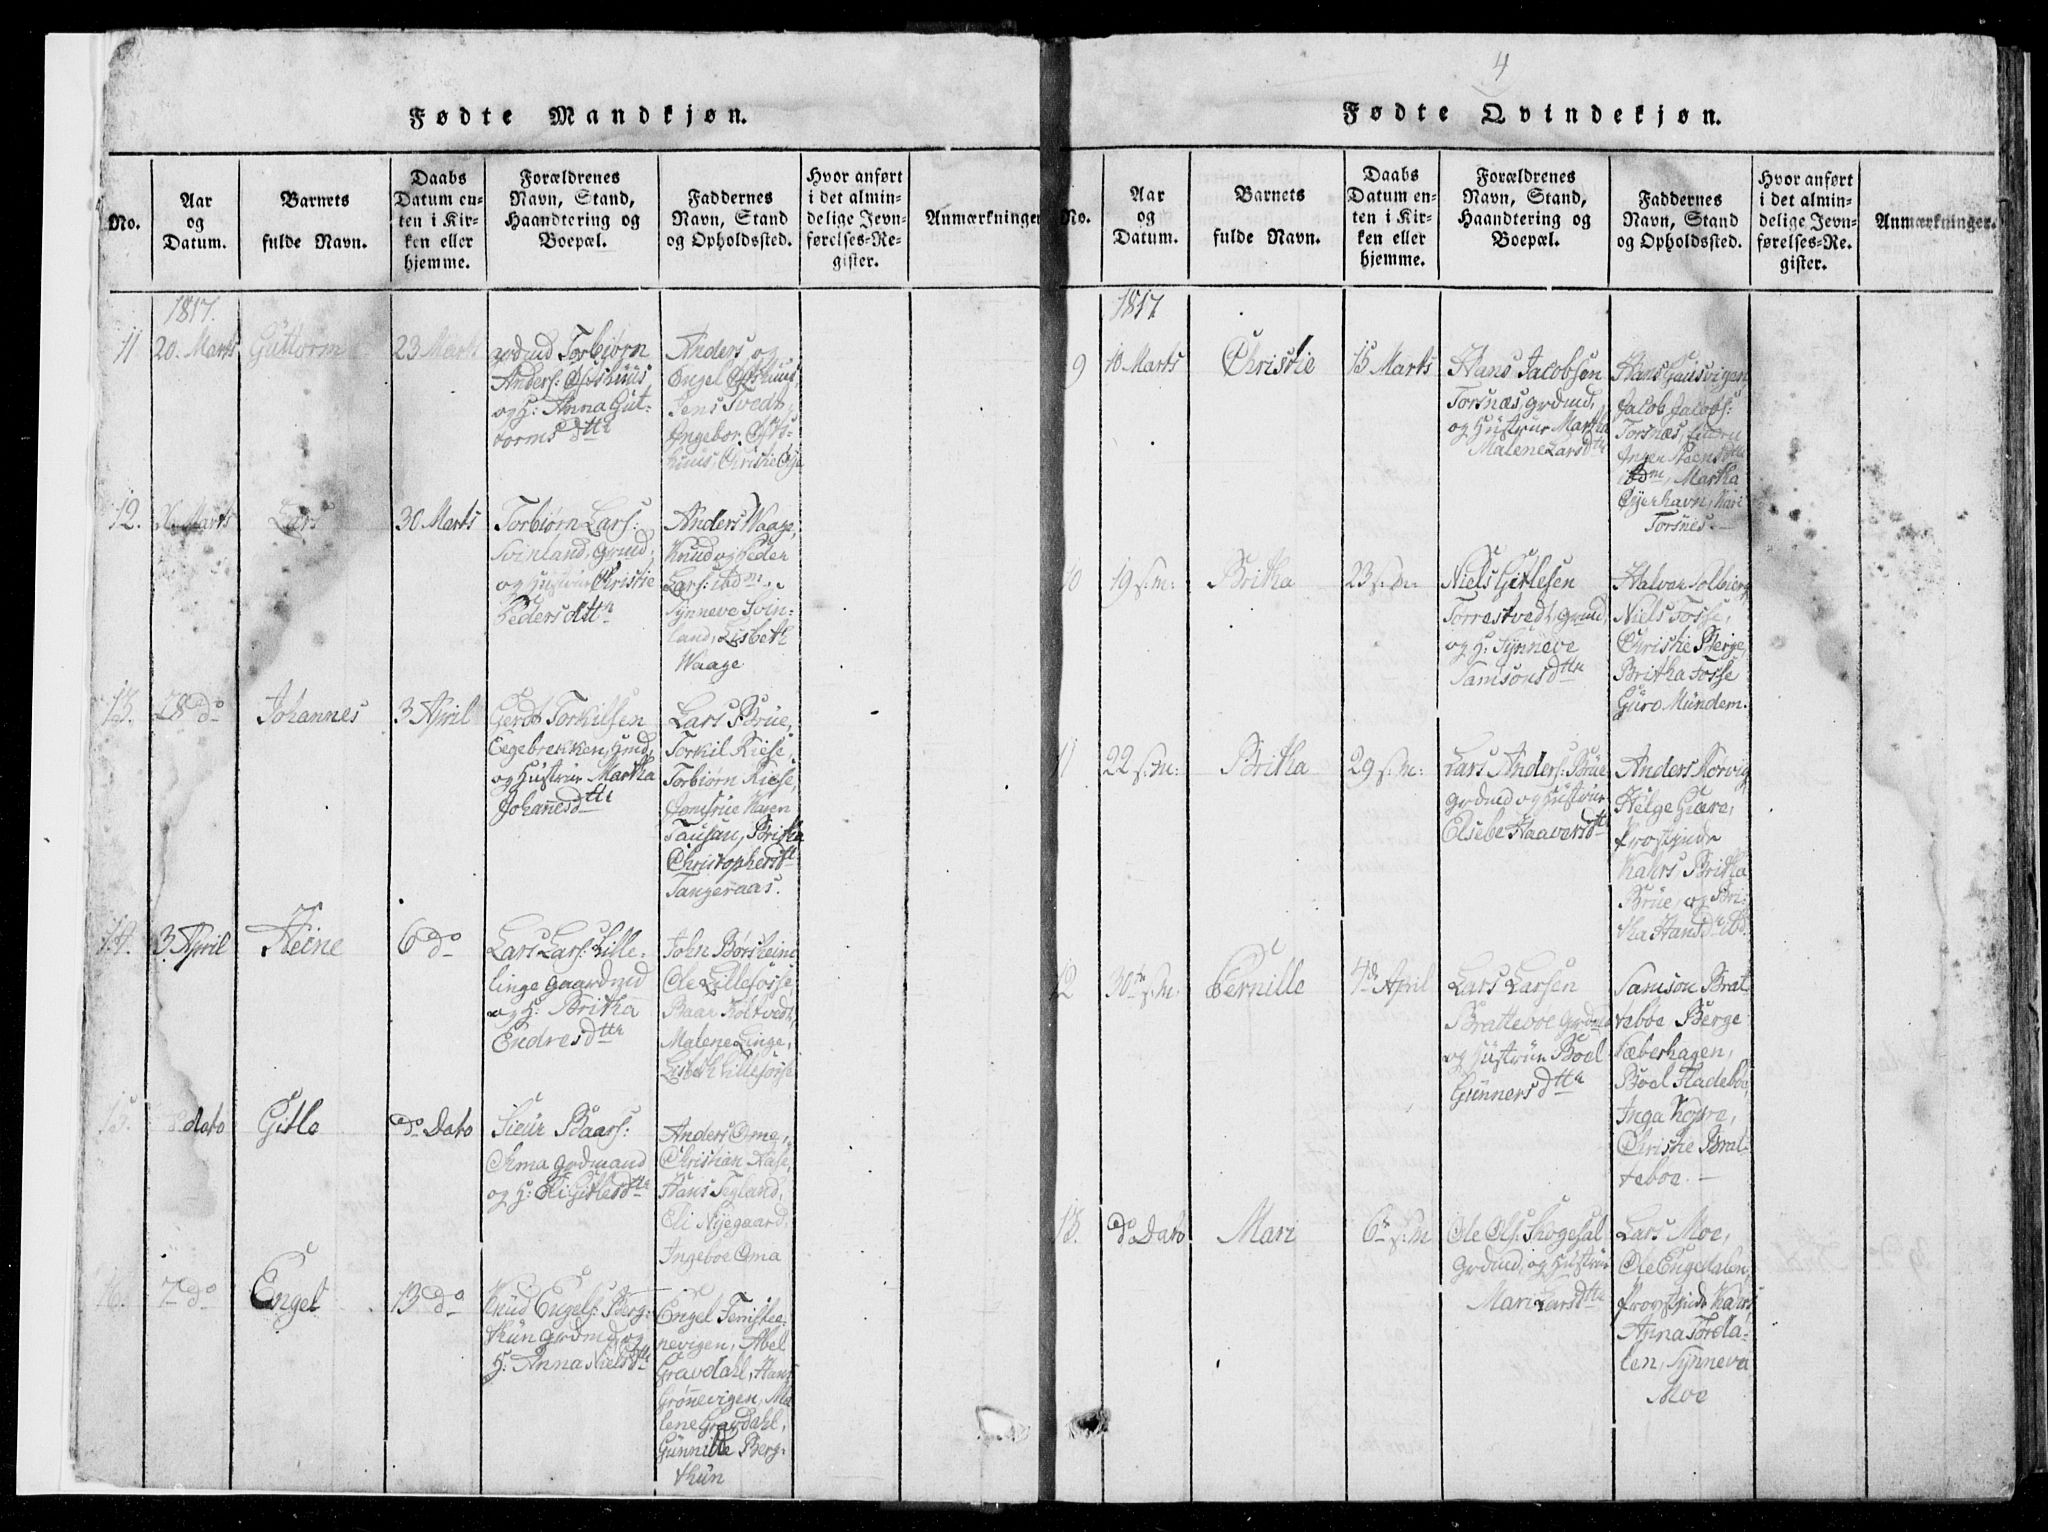 4
Fødte Mandkjøn.
No.
Aar
og
Datum.
Barnets
fulde Navn.
Daabs
Datum en-
ten i Kir-
ken eller
hjemme.
Forældrenes
Navn, Stand,
Haandtering og
Boepæl.
Faddernes
Navn, Stand
og Opholdssted.
Hvor anført
i det almin-
delige Jevn-
førelses-Re-
gister.
Anmærkninger
1817.
11
20. Marts
Guttorm
23 Marts
grdmd Torbiørn
Anders:
og H: Anna Gut-
torms dttr
Anders og
Engel
Jens Tvedt,
Ingebor
huus Christie
12.
Marts
Lars
30 Marts
Torbiørn Lars:
Svinland, grmd,
og Hustrue Christie
Peders dttr
Anders Waage,
Knud og Peder
Lars: ibdm,
Synneve Svin-
land, Lisbeth
Waage
13.
28 do
Johannes
3 April
Gerdt Torkilsen
Eegebrekken, grmd,
og Hustrue Martha
Johannesdttr
Lars Brue,
Torkil Riese,
Torbiørn Riese,
Jomfrue Karen
Tausan, Britha
Christophersdt
Tangeraas.
14.
3 April
Heine
6 do
Lars Lars: Lille-
linge gaardmd
og H: Britha
Endresdttr
John Børsheim
Ole Lillefosse
Baar Koltvedt,
Malene Linge,
Lisbeth Lillefosse
15.
dato
Gitle
do Dato
Siur Baars:
Oma grdmand
og H: Eli Gitlesdttr
Anders Oma,
Christian Aase,
Hans Tegland,
Eli Nyegaard
Ingeboe Oma
16.
7 do
Engel
13 do
Knud Engels: Berg-
thun grdmd, og
H: Anna Nielsdtt
Engel
nevigen, Abel
Gravdahl, Hans
Grønnevigen, Ma-
lene Gravdahl,
Gunnilde Berg-
thun
Fødte Qvindekjøn.
No.
Aar
og
Datum.
Barnets
fulde Navn.
Daabs
Datum en-
ten i Kir-
ken eller
hjemme.
Forældrenes
Navn, Stand,
Haandtering og
Boepæl.
Faddernes
Navn, Stand
og Opholdssted.
Hvor anført
i det almin-
delige Jevn-
førelses-Re-
gister.
Anmærkninger.
1817
9
10 Marts
Christie
15 Marts
Hans Jacobsen
Torsnæs, grdmd,
og Hustrue Martha
Malene Larsdtr
Hans Gausvigen
Jacob Jacobs:
Torsnæs,
Inger
ibdm, Martha
Øyerhavn, Kari
Torsnes.
10
19 s: m:
Britha
23 s: m:
Niels Gitlesen
Torrestvedt, grmd,
og H: Synneve
Samsonsdttr
Halvor Solbierg
Niels Fosse,
Christie Berge,
Britha Fosse
Guro Mundem.
11
22 s: m:
Britha
29 s: m:
Lars Anders: Brue
grdmd og Hustrue
Elsebe Haaversdtt
Anders Norvig
Helge Giære,
Provstinde
Kahrs, Britha
Brue, og Bri-
tha Hansdtr ibd.
12
30te s: m:
Pernille
4de April
Lars Larsen
Bratteboe grdmd
og Hustrue Boel
Gunnersdttr
Samson Brat-
teboe Berge
Næberhagen,
Boel Fladeboe,
Inga Kopre,
Christie Brat-
teboe.
13.
do Dato
Mari
6te s: m
Ole Ols: Skogesal
grdmd, og Hustrue
Mari Larsdttr
Lars Moe,
Ole Engedalen,
Provstinde Kahrs,
Anna Tordla-
len, Synneva
Moe